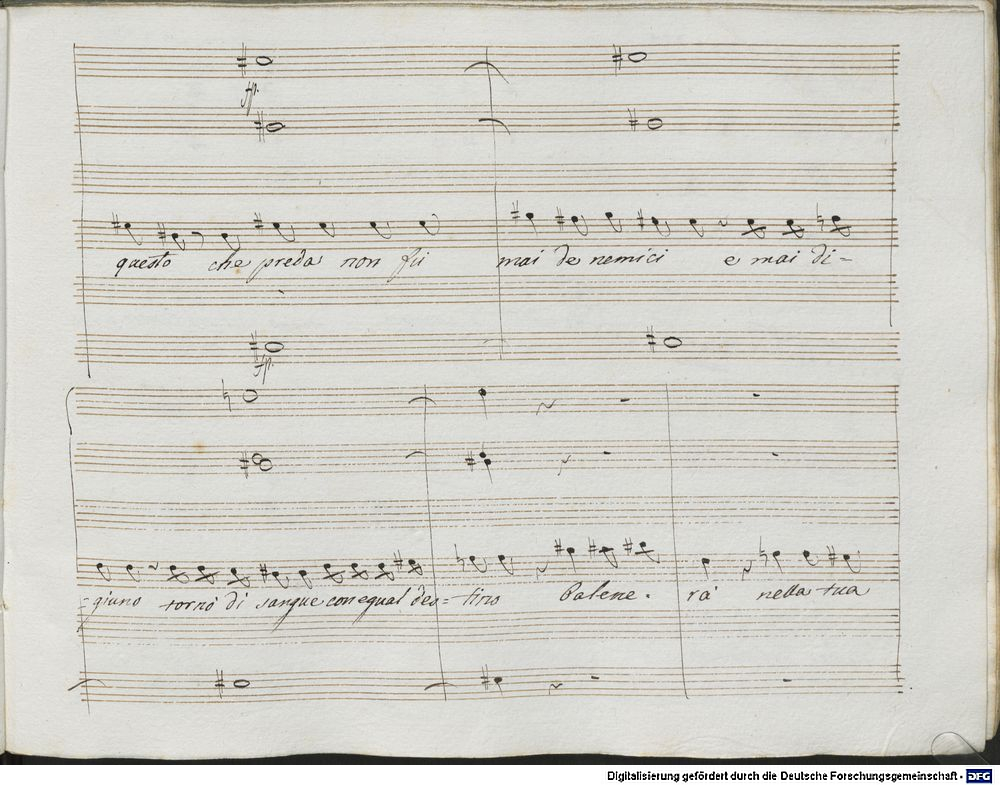 fp.
questo che preda non fu mai de nemici e mai di=
fp.
=giuno tornò di sangue con egual des=tino balene. rà nella tua
Digitalisierung gefördert durch die Deutsche Forschungsgemeinschaft - DFG